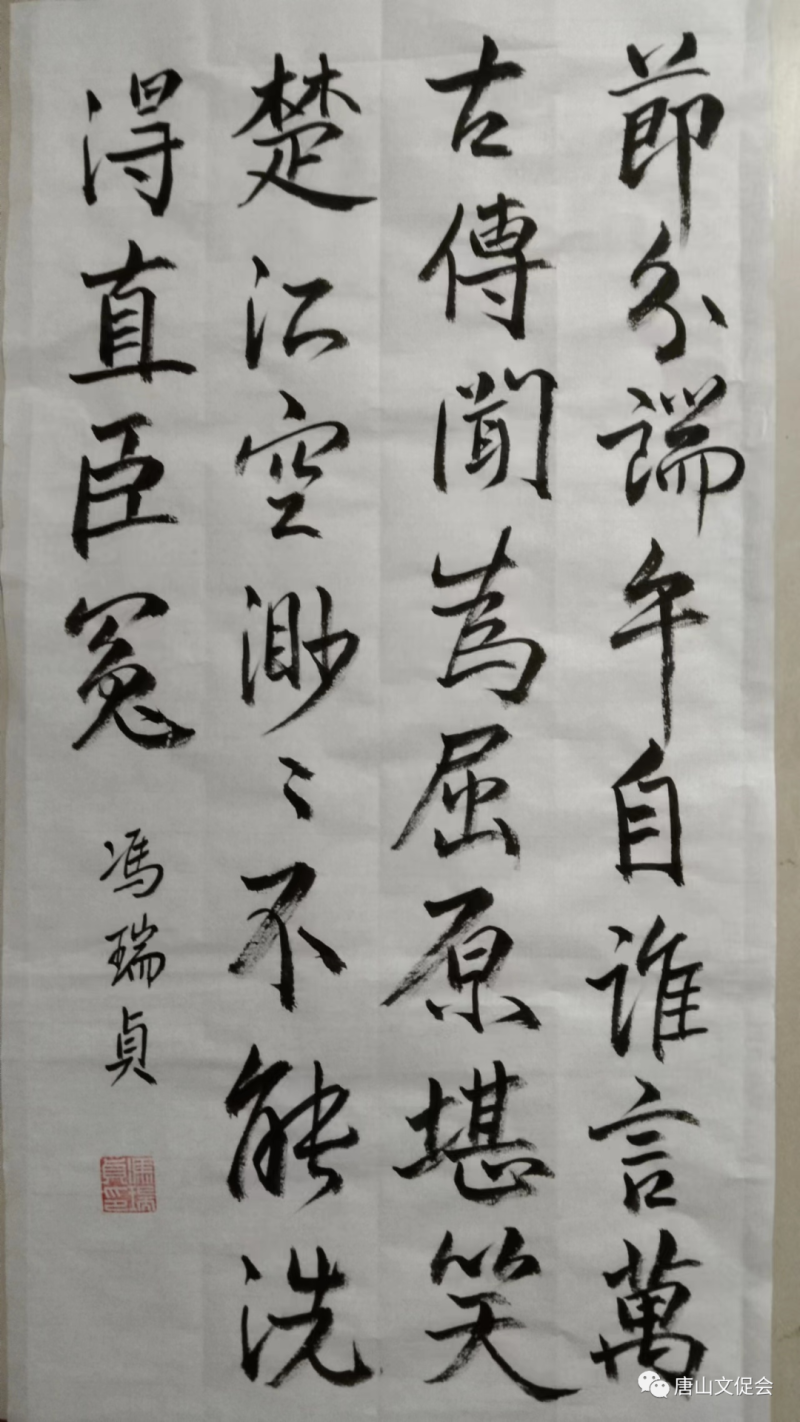 節分端午自誰言萬
古傳聞為屈原堪笑
楚江空渺〻不能洗
得直臣冤
馮瑞貞
唐山文促会